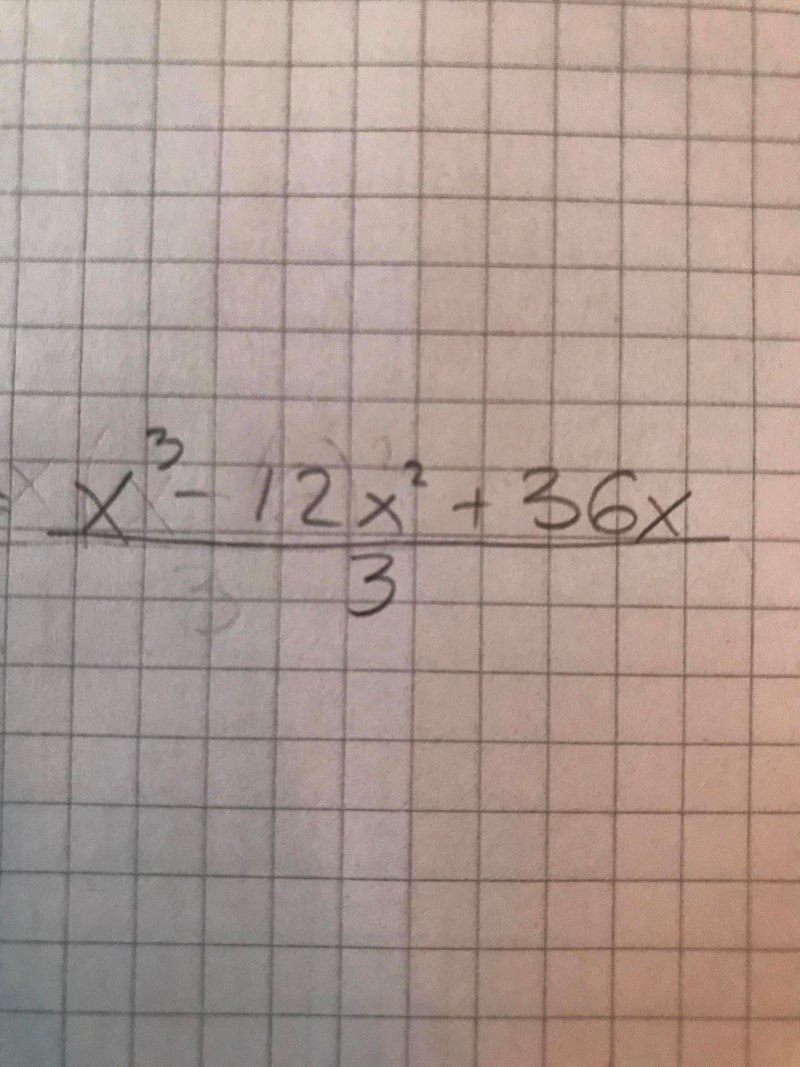 x³ - 12x² + 36x
3